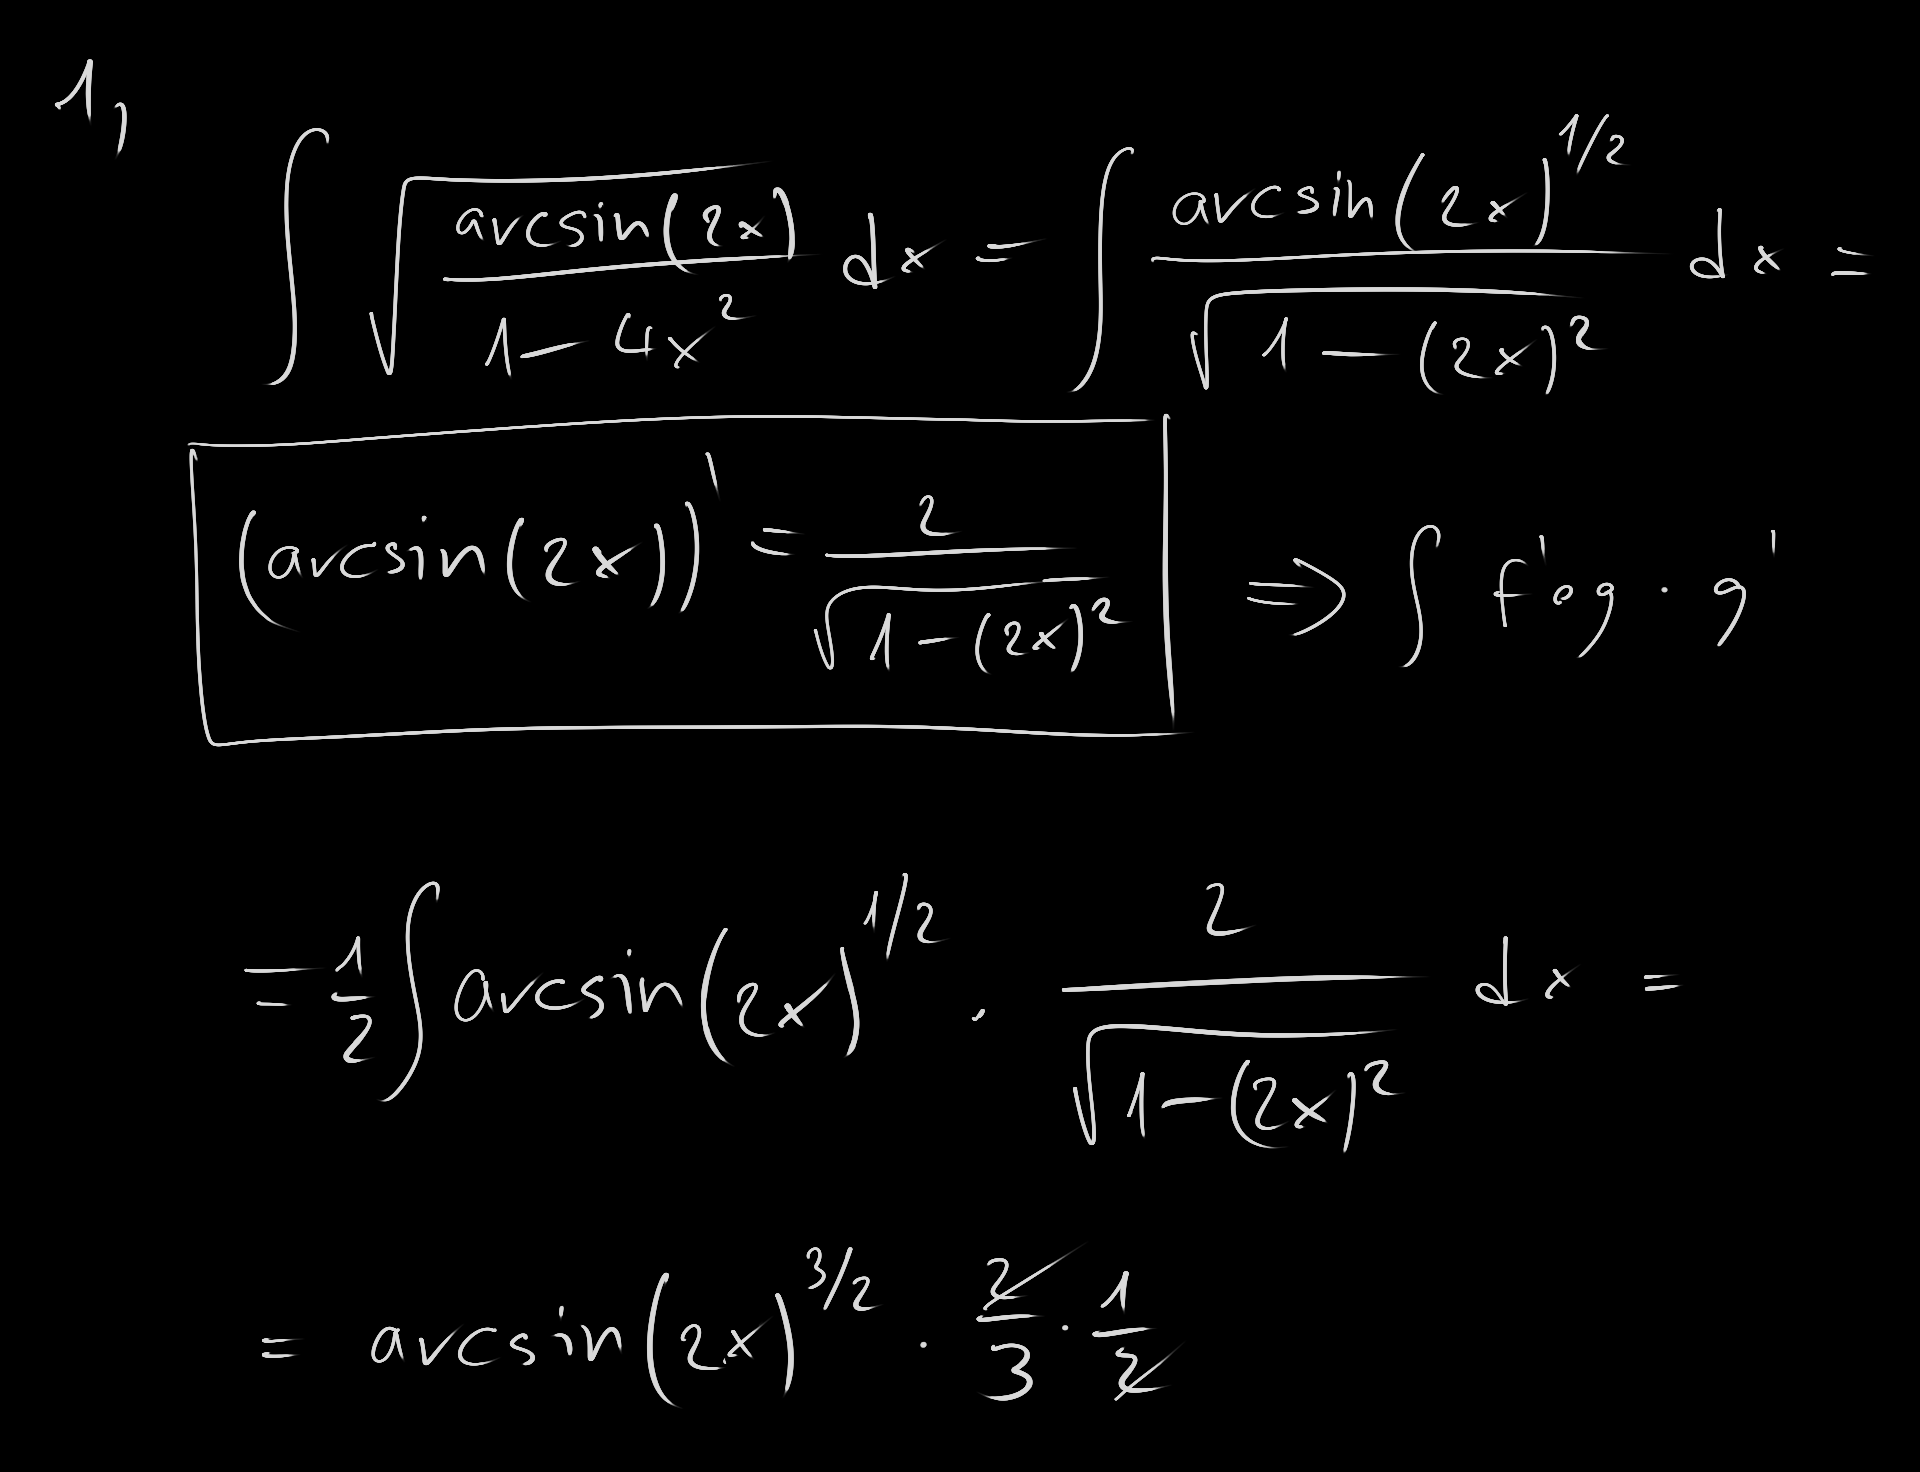 1,
∫ √(arcsin(2x) / (1 − 4x²)) dx = ∫ arcsin(2x)^(1/2) / √(1 − (2x)²) dx =
(arcsin(2x))' = 2 / √(1 − (2x)²) ⇒ ∫ f'∘g · g'
= 1/2 ∫ arcsin(2x)^(1/2) · 2 / √(1 − (2x)²) dx =
= arcsin(2x)^(3/2) · 2/3 · 1/2